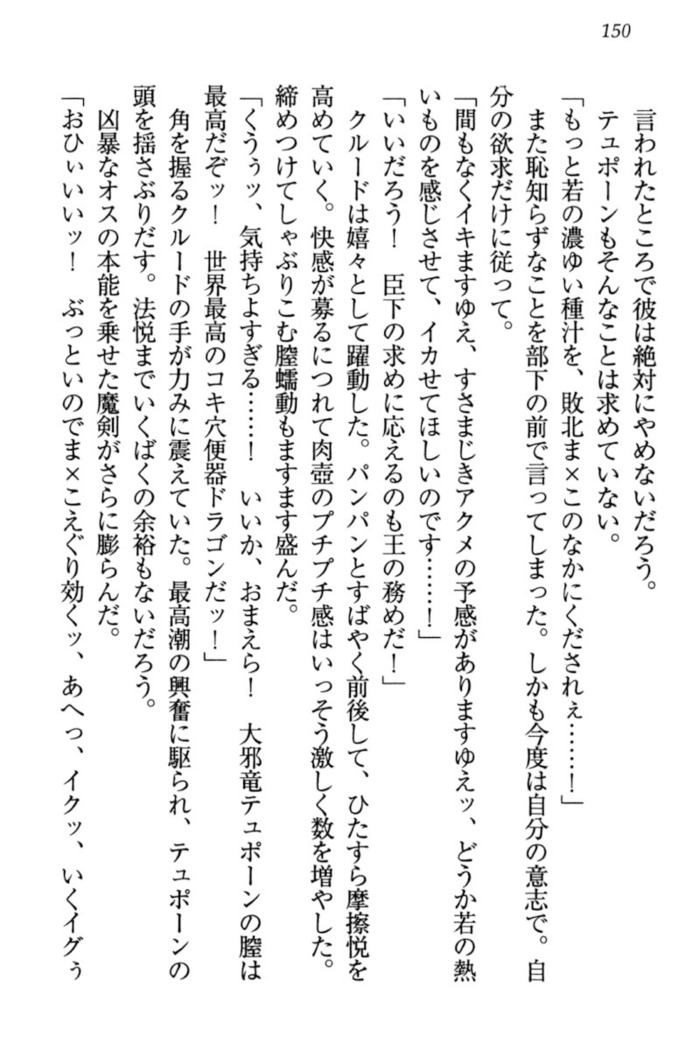 150
言われたところで彼は絶対にやめないだろう。
テュポーンもそんなことは求めていない。
「もっと若の濃ゆい種汁を、敗北ま×このなかにくだされぇ……！」
また恥知らずなことを部下の前で言ってしまった。しかも今度は自分の意志で。自
分の欲求だけに従って。
「間もなくイキますゆえ、すさまじきアクメの予感がありますゆえッ、どうか若の熱
いものを感じさせて、イカせてほしいのです……！」
「いいだろう！　臣下の求めに応えるのも王の務めだ！」
クルードは嬉々として躍動した。パンパンとすばやく前後して、ひたすら摩擦悦を
高めていく。快感が募るにつれて肉壺のプチプチ感はいっそう激しく数を増やした。
締めつけてしゃぶりこむ膣蠕動もますます盛んだ。
「くうぅッ、気持ちよすぎる……！　いいか、おまえら！　大邪竜テュポーンの膣は
最高だぞッ！　世界最高のコキ穴便器ドラゴンだッ！」
角を握るクルードの手が力みに震えていた。最高潮の興奮に駆られ、テュポーンの
頭を揺さぶりだす。法悦までいくばくの余裕もないだろう。
凶暴なオスの本能を乗せた魔剣がさらに膨らんだ。
「おひぃいいッ！　ぶっといのでま×こえぐり効くッ、あへっ、イクッ、いくイグぅ